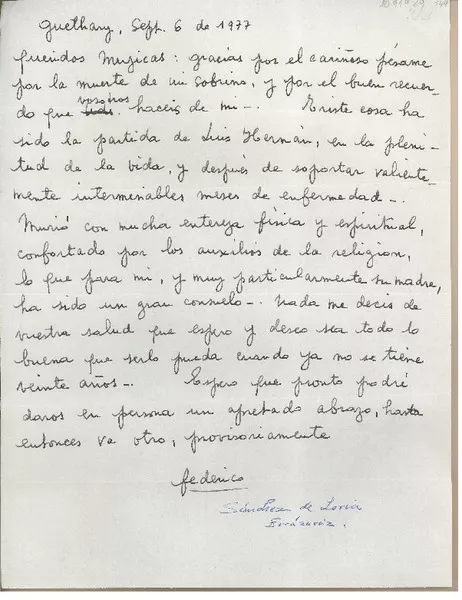 Guethary, Sept. 6 de 1977
Queridos Mujicas: gracias por el cariñoso pésame
por la muerte de mi sobrino, y por el buen recuer-
vosotros
do que haceis de mi-. Triste cosa ha
sido la partida de Luis Hernán, en la pleni-
tud de la vida, y después de soportar valiente-
mente interminables meses de enfermedad-.
Murió con mucha entereza física y espiritual,
confortado por los auxilios de la religion,
lo que para mi, y muy particularmente su madre,
ha sido un gran consuelo-. Nada me decis de
vuestra salud que espero y deseo sea todo lo
buena que serlo pueda cuando ya no se tiene
veinte años-. Espero que pronto podré
daros en persona un apretado abrazo, hasta
entonces va otro, provisoriamente
Federico
Sánchez de Loria
Errázuriz.